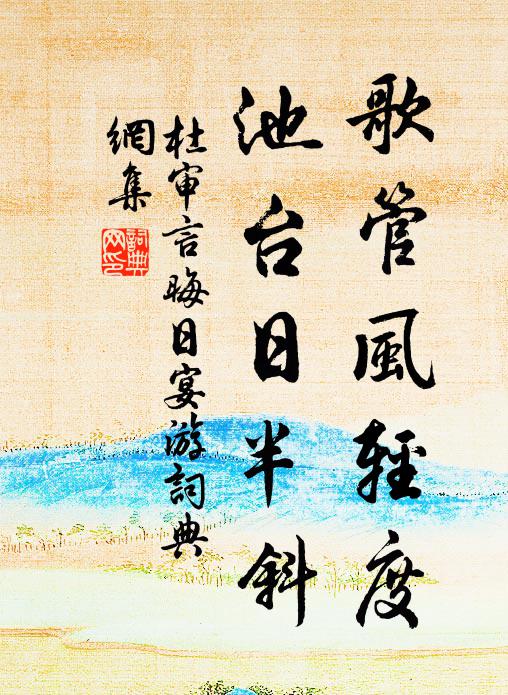 歌管風輕度
池台日半斜
杜审言晦日宴游詞典
網集
詞典
网印